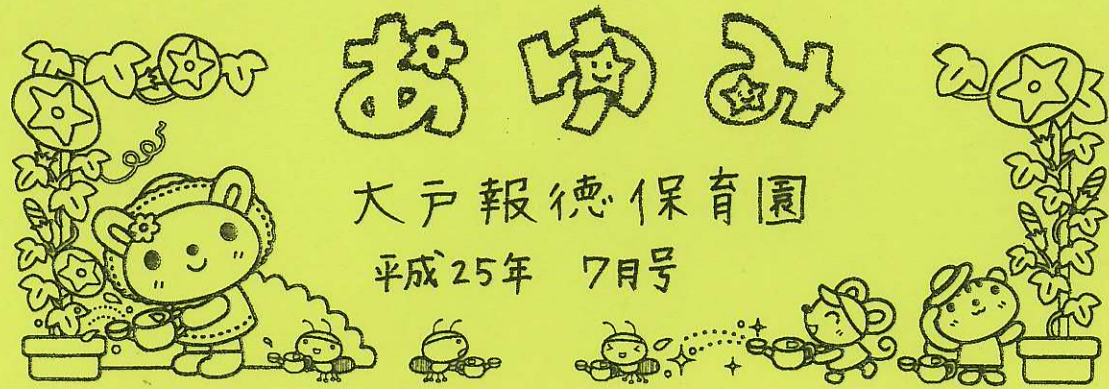 あゆみ
大戸報徳保育園
平成25年 7月号